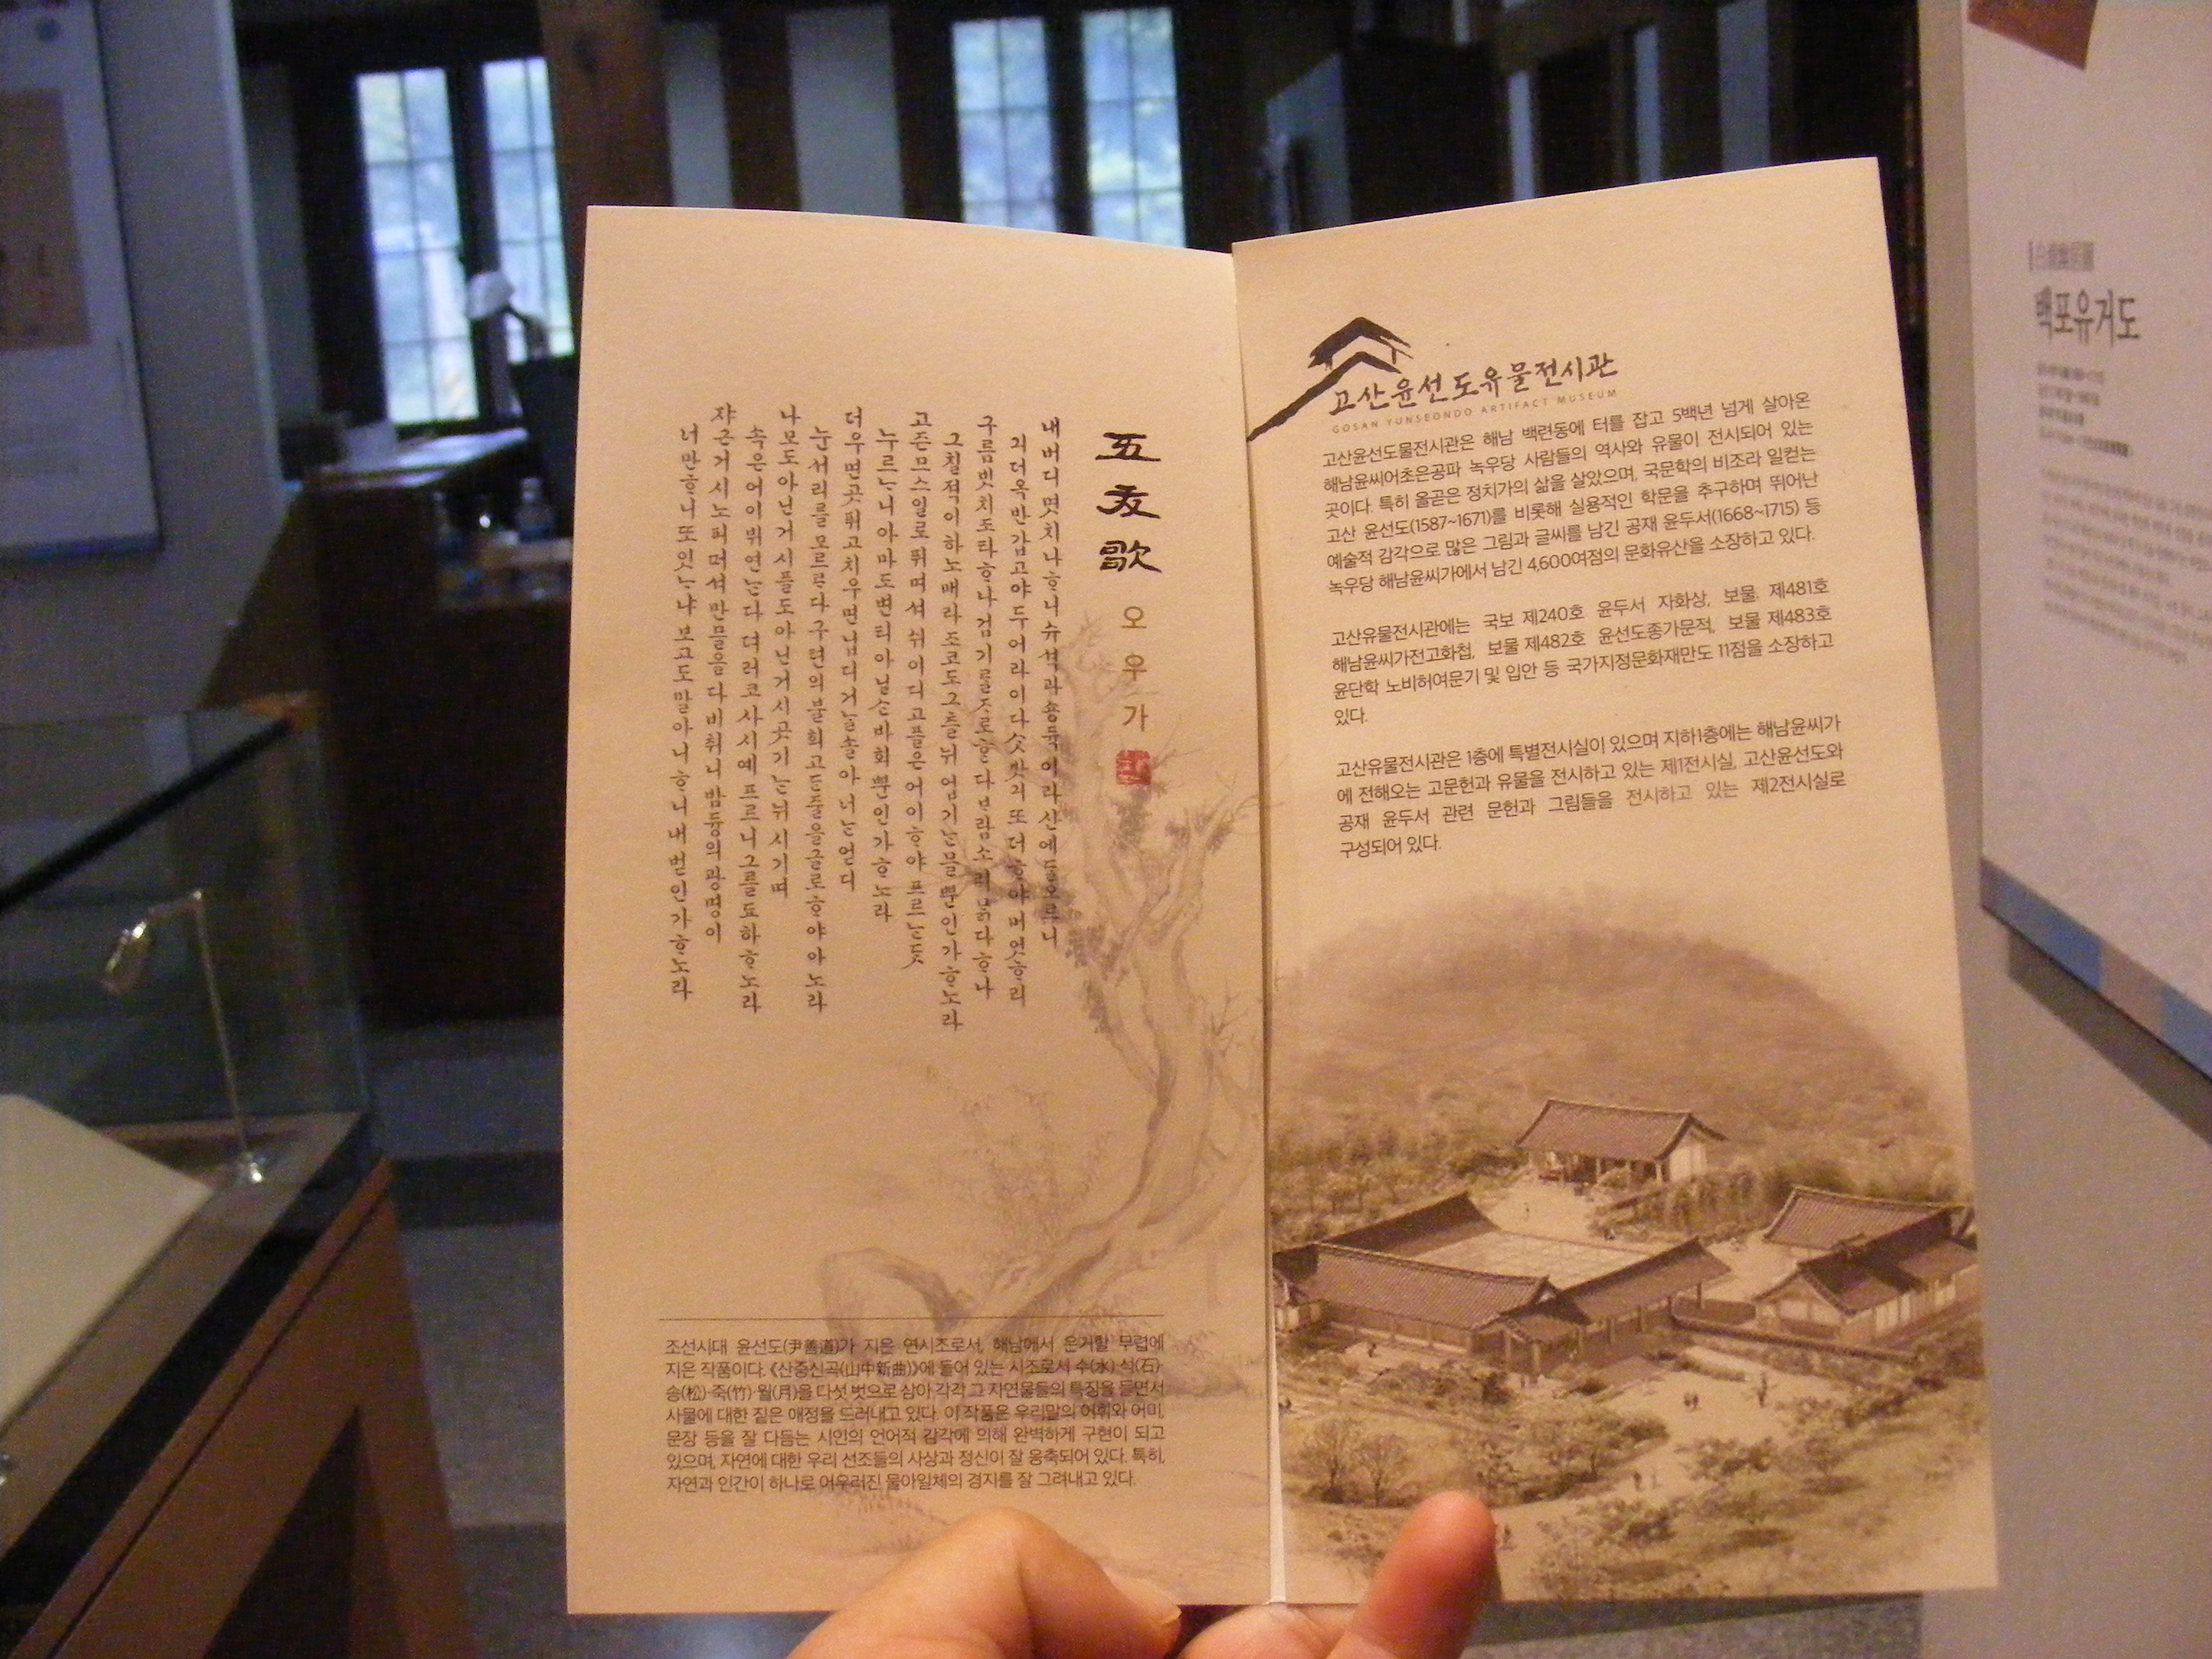 五友歌
오우가
내버디몃치나ᄒᆞ니슈셕과숑듁이라산에ᄃᆞᆯ오르니
긔더옥반갑고야두어라이다ᄉᆞᆺ밧긔또더ᄒᆞ야머엇ᄒᆞ리
구름빗치조타ᄒᆞ나검기ᄅᆞᆯᄌᆞ로ᄒᆞᆫ다ᄇᆞ람소ᄅᆡᄆᆞᆰ다ᄒᆞ나
그칠적이하노매라조코도그츨뉘업기ᄂᆞᆫ믈뿐인가ᄒᆞ노라
고즌므스일로퓌며셔쉬이디고플은어이ᄒᆞ야프르ᄂᆞᆫᄃᆞᆺ
누르ᄂᆞ니아마도변티아닐ᄉᆞᆫ바회뿐인가ᄒᆞ노라
더우면곳퓌고치우면닙디거ᄂᆞᆯ솔아너ᄂᆞᆫ언디
눈서리ᄅᆞᆯ모ᄅᆞᄂᆞᆫ다구텬의불희고ᄃᆞᆫ줄을글로ᄒᆞ야아노라
나모도아닌거시플도아닌거시곳기ᄂᆞᆫ뉘시기며
속은어이뷔연ᄂᆞᆫ다뎌러코사시예프르니그를됴하ᄒᆞ노라
쟈근거시노피떠셔만믈을다비취니밤듕의광명이
너만ᄒᆞ니또잇ᄂᆞ냐보고도말아니ᄒᆞ니내벋인가ᄒᆞ노라
조선시대 윤선도(尹善道)가 지은 연시조로서, 해남에서 은거할 무렵에
지은 작품이다. 《산중신곡(山中新曲)》에 들어 있는 시조로서 수(水)·석(石)·
송(松)·죽(竹)·월(月)을 다섯 벗으로 삼아 각각 그 자연물들의 특징을 들면서
사물에 대한 짙은 애정을 드러내고 있다. 이 작품은 우리말의 어휘와 어미,
문장 등을 잘 다듬는 시인의 언어적 감각에 의해 완벽하게 구현이 되고
있으며, 자연에 대한 우리 선조들의 사상과 정신이 잘 응축되어 있다. 특히,
자연과 인간이 하나로 어우러진 물아일체의 경지를 잘 그려내고 있다.
고산윤선도유물전시관
GOSAN YUNSEONDO ARTIFACT MUSEUM
고산윤선도물전시관은 해남 백련동에 터를 잡고 5백년 넘게 살아온
해남윤씨어초은공파 녹우당 사람들의 역사와 유물이 전시되어 있는
곳이다. 특히 올곧은 정치가의 삶을 살았으며, 국문학의 비조라 일컫는
고산 윤선도(1587~1671)를 비롯해 실용적인 학문을 추구하며 뛰어난
예술적 감각으로 많은 그림과 글씨를 남긴 공재 윤두서(1668~1715) 등
녹우당 해남윤씨가에서 남긴 4,600여점의 문화유산을 소장하고 있다.
고산유물전시관에는 국보 제240호 윤두서 자화상, 보물 제481호
해남윤씨가전고화첩, 보물 제482호 윤선도종가문적, 보물 제483호
윤단학 노비허여문기 및 입안 등 국가지정문화재만도 11점을 소장하고
있다.
고산유물전시관은 1층에 특별전시실이 있으며 지하1층에는 해남윤씨가
에 전해오는 고문헌과 유물을 전시하고 있는 제1전시실, 고산윤선도와
공재 윤두서 관련 문헌과 그림들을 전시하고 있는 제2전시실로
구성되어 있다.
백포유거도